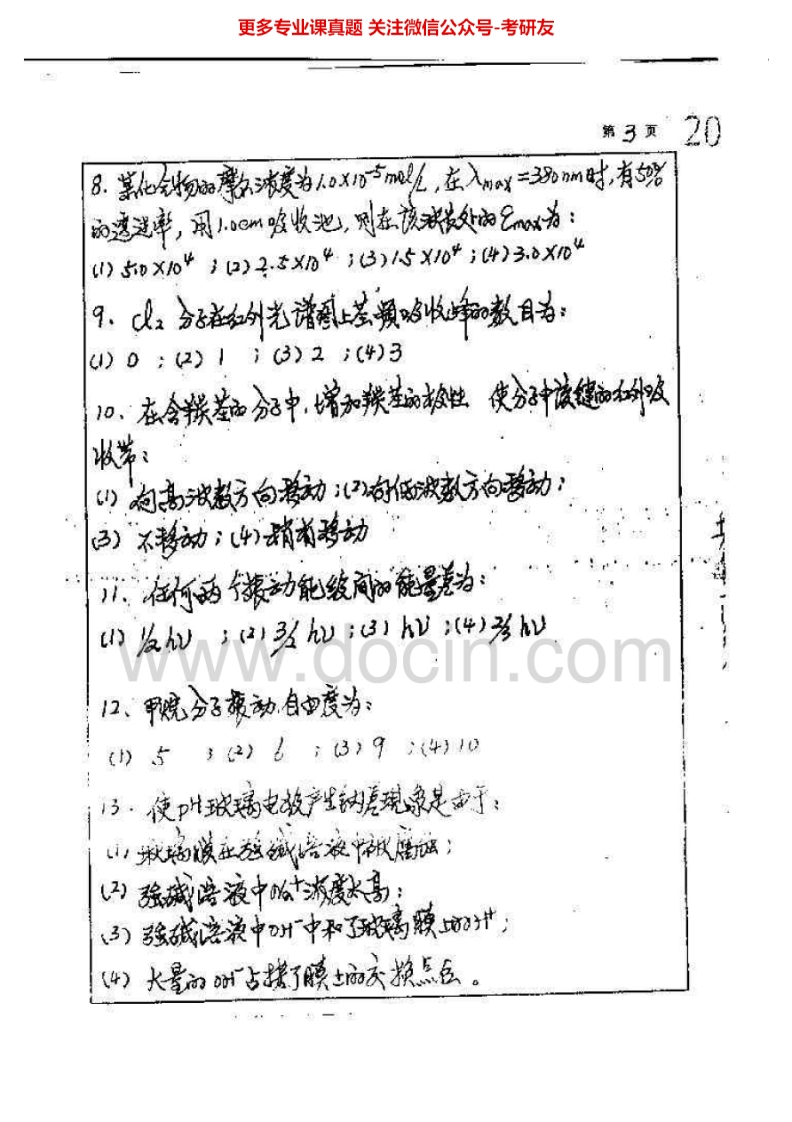 更多专业课真题 关注微信公众号-考研友
第 3 页 20
8. 某化合物的摩尔浓度为1.0×10⁻⁵mol/L, 在λmax=380nm时, 有50%
的透过率, 用1.0cm吸收池, 则在该波长处的εmax为:
(1) 5.0×10⁴ ; (2) 2.5×10⁴ ; (3) 1.5×10⁴ ; (4) 3.0×10⁴
9. Cl₂ 分子在红外光谱图上基频吸收峰的数目为:
(1) 0 ; (2) 1 ; (3) 2 ; (4) 3
10. 在含羰基的分子中, 增加羰基的极性 使分子中该键的红外吸
收带:
(1) 向高波数方向移动; (2) 向低波数方向移动;
(3) 不移动; (4) 稍有移动
11. 任何两个振动能级间的能量差为:
(1) 1/2 hν ; (2) 3/2 hν ; (3) hν ; (4) 2/3 hν
www.docin.com
12、甲烷分子振动自由度为:
(1) 5 ; (2) 6 ; (3) 9 ; (4) 10
13. 使pH玻璃电极产生钠差现象是由于:
(1) 玻璃膜在强碱溶液中被腐蚀;
(2) 强碱溶液中Na⁺浓度太高;
(3) 强碱溶液中OH⁻中和了玻璃膜上的H⁺;
(4) 大量的OH⁻占据了膜上的交换点位。